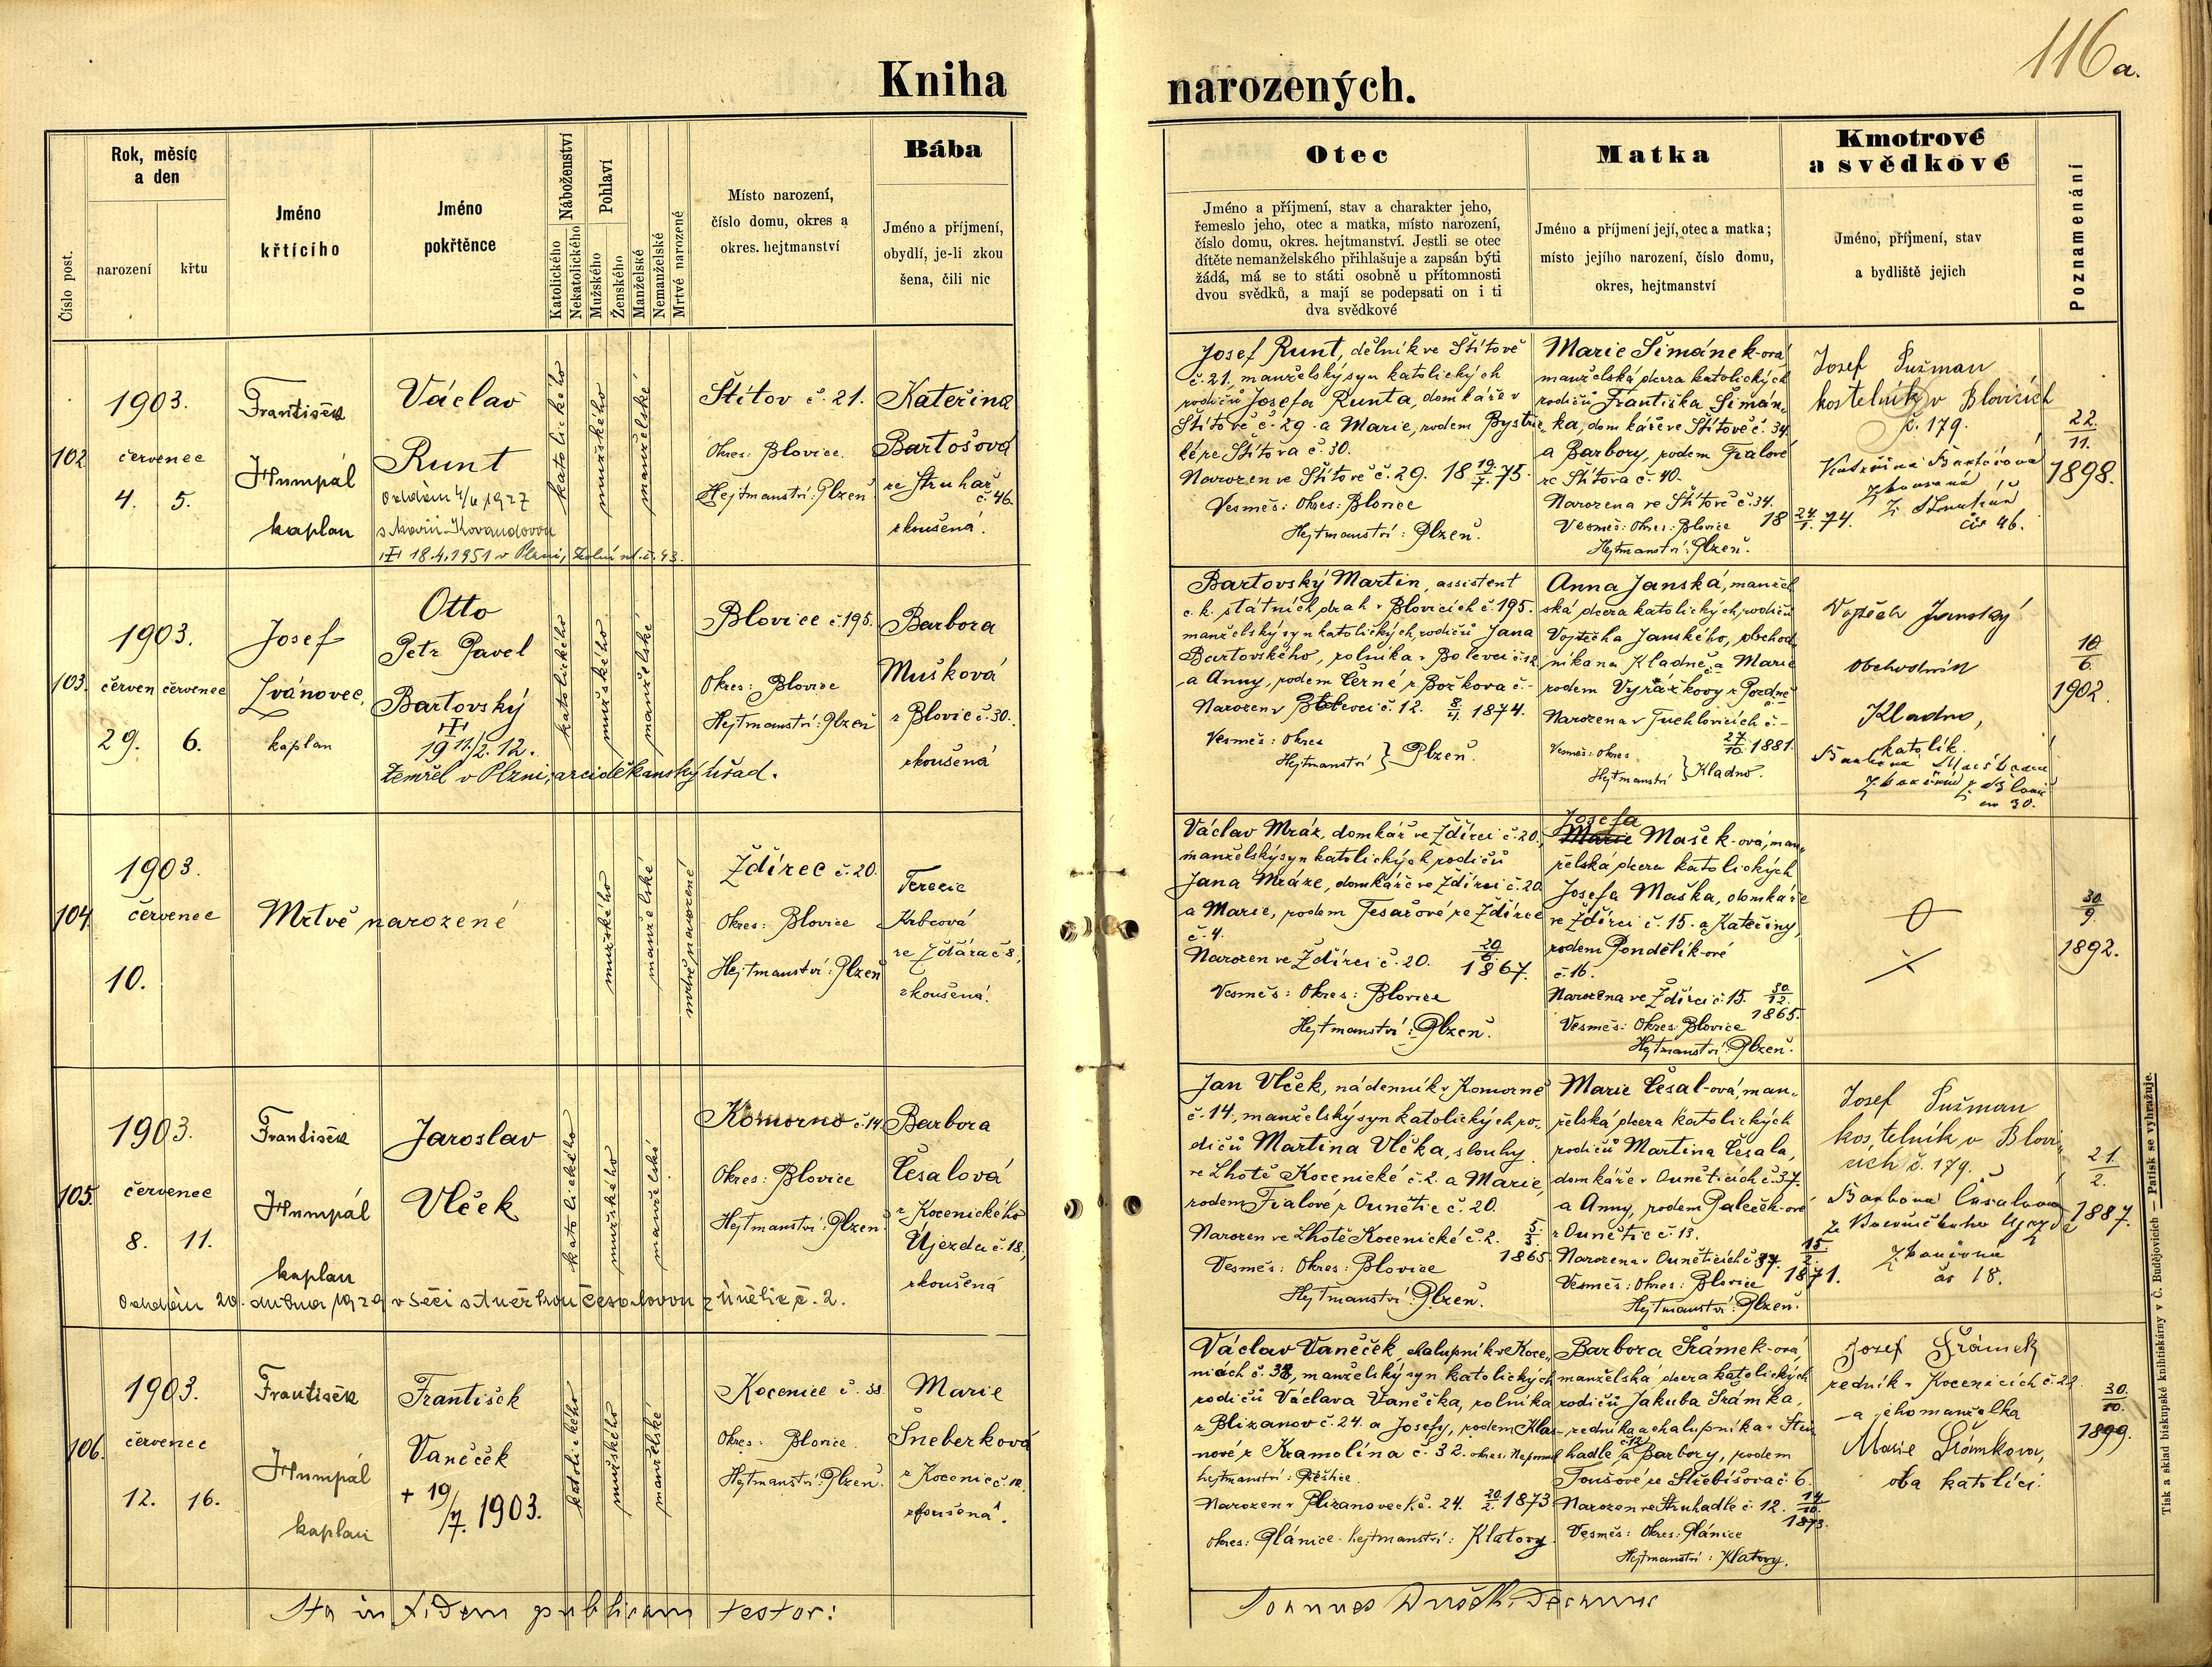 116a.
Kniha narozených.
Číslo post.
Rok, měsíc
a den
narození
křtu
Jméno
křtícího
Jméno
pokřtěnce
Náboženství
Katolického
Nekatolického
Pohlaví
Mužského
Ženského
Manželské
Nemanželské
Mrtvé narozené
Místo narození,
číslo domu, okres a
okres. hejtmanství
Bába
Jméno a příjmení,
obydlí, je-li zkou
šena, čili nic
Otec
Jméno a příjmení, stav a charakter jeho,
řemeslo jeho, otec a matka, místo narození,
číslo domu, okres. hejtmanství. Jestli se otec
dítěte nemanželského přihlašuje a zapsán býti
žádá, má se to státi osobně u přítomnosti
dvou svědků, a mají se podepsati on i ti
dva svědkové
Matka
Jméno a příjmení její, otec a matka;
místo jejího narození, číslo domu,
okres, hejtmanství
Kmotrové
a svědkové
Jméno, příjmení, stav
a bydliště jejich
Poznamenání
102
1903.
červenec
4. 5.
František
Humpál
kaplan
Václav
Runt
Oddán 4/6 1927
s Marií Kovandovou
18.4.1951 v Plzni, č. 43.
katolického
mužského
manželské
Štítov č. 21.
Okres: Blovice.
Hejtmanství: Plzeň
Kateřina
Bartošová
ze Struhař
č. 46.
zkoušená.
Josef Runt, dělník ve Štítově
č. 21, manželský syn katolických
rodičů Josefa Runta, domkáře v
Štítově č. 29. a Marie, rodem Bystřic-
ké ze Štítova č. 30.
Narozen ve Štítově č. 29. 18 19/7. 75.
Vesměs: Okres: Blovice
Hejtmanství: Plzeň.
Marie Šimánek-ová
manželská dcera katolických
rodičů Františka Šimán-
ka, domkáře ve Štítově č. 34.
a Barbory, rodem Fialové
ze Štítova č. 40.
Narozena ve Štítově č. 34.
Vesměs: Okres: Blovice 18 24/1. 74.
Hejtmanství: Plzeň.
Josef Sužman
kostelník v Blovicích
č. 179.
Kateřina Bartošová
zkoušená
z Struhař
čís 46.
22.
11.
1898.
103.
1903.
červen červenec
29. 6.
Josef
Ivánovec,
kaplan
Otto
Petr Pavel
Bartovský
19 11./2. 12.
Zemřel v Plzni, arciděkanský úřad.
katolického
mužského
manželské
Blovice č. 195.
Okres: Blovice
Hejtmanství: Plzeň
Barbora
Mušková
z Blovic č. 30.
zkoušená
Bartovský Martin, assistent
c. k. státních drah v Blovicích č. 195.
manželský syn katolických rodičů Jana
Bartovského, rolníka v Bolevci č. 12
a Anny, rodem Černé z Božkova č. -
Narozen v Bolevci č. 12. 8/11. 1874.
Vesměs: Okres
Hejtmanství } Plzeň.
Anna Janská, manžel-
ská dcera katolických rodičů
Vojtěcha Janského, obchod-
níka na Kladně a Marie
rodem Vyrážkovy z Pozdně
Narozena v Tuchlovicích č. -
27/10. 1881.
Vesměs: Okres
Hejtmanství } Kladno.
Vojtěch Janský
obchodník
Kladno,
katolík.
Barbora Mušková
zkoušená z Blovic
čís 30.
10
6.
1902.
104.
1903.
červenec
10.
Mrtvě narozené
mužského
manželské
mrtvě narozené
Ždírec č. 20.
Okres: Blovice
Hejtmanství: Plzeň
Terezie
Krbcová
ze Ždára č. 8,
zkoušená.
Václav Mráz, domkář ve Ždírci č. 20,
manželský syn katolických rodičů
Jana Mráze, domkáře ve Ždírci č. 20
a Marie, rodem Tesařové ze Ždírce
č. 4.
Narozen ve Ždírci č. 20. 20/6. 1867.
Vesměs: Okres: Blovice
Hejtmanství: Plzeň.
Josefa
Marie Mašek-ová, man-
želská dcera katolických
Josefa Maška, domkáře
ve Ždírci č. 15. a Kateřiny,
rodem Pondělík-ové
č. 16.
Narozena ve Ždírci č. 15. 30/12.
1865.
Vesměs: Okres: Blovice
Hejtmanství: Plzeň.
30
9.
1892.
105.
1903.
červenec
8. 11.
František
Humpál
kaplan
Jaroslav
Vlček
Oddán 20. dubna 1929 v Seči s Anežkou Česalovou z Únětic č. 2.
katolického
mužského
manželské
Komorno č. 14
Okres: Blovice
Hejtmanství: Plzeň.
Barbora
Česalová
z Kocenického
Újezda č. 18,
zkoušená
Jan Vlček, nádenník v Komorně
č. 14., manželský syn katolických ro-
dičů Martina Vlčka, sluhy
ve Lhotě Kocenické č. 2. a Marie,
rodem Fialové z Ounětic č. 20.
Narozen ve Lhotě Kocenické č. 2. 5/3.
1865.
Vesměs: Okres: Blovice
Hejtmanství: Plzeň.
Marie Česal-ová, man-
želská dcera katolických
rodičů Martina Česala,
domkáře v Ouněticích č. 37.
a Anny, rodem Paleček-ové
z Ounětic č. 13.
Narozena v Ouněticích č. 37. 15/2.
Vesměs: Okres: Blovice 1871.
Hejtmanství: Plzeň.
Josef Sužman
kostelník v Blovi-
cích č. 179.
Barbora Česalová
z Kocenického Újezda
zkoušená
čís 18.
21.
2.
1887.
106.
1903.
červenec
12. 16.
František
Humpál
kaplan
František
Vaněček
+ 19/7. 1903.
katolického
mužského
manželské
Kocenice č. 38.
Okres: Blovice.
Hejtmanství: Plzeň.
Marie
Šneberková
z Kocenic č. 10.
zkoušená.
Václav Vaněček, chalupník v Koce-
nicích č. 38, manželský syn katolických
rodičů Václava Vaněčka, rolníka
z Blizanov č. 24. a Josefy, rodem Klas-
nové z Kramolína č. 32. okres: Nepomuk
hejtmanství:
Narozen v Plizanovech č. 24. 20/2. 1873
okres: Plánice. hejtmanství: Klatovy.
Barbora Šrámek-ová,
manželská dcera katolických
rodičů Jakuba Šrámka,
zedníka a chalupníka v Stru-
hadle č. 12 a Barbory, rodem
Toušové ze Střebišova č. 6.
Narozen ve Struhadle č. 12. 14/10.
1873.
Vesměs: Okres: Plánice
Hejtmanství: Klatovy.
Josef Šrámek
zedník v Kocenicích č. 22
a jeho manželka
Marie Šrámkova,
oba katolíci.
30.
10.
1899.
Ita in fidem publicam testor:
Tisk a sklad biskupské knihtiskárny v Č. Budějovicích — Patisk se vyhražuje.